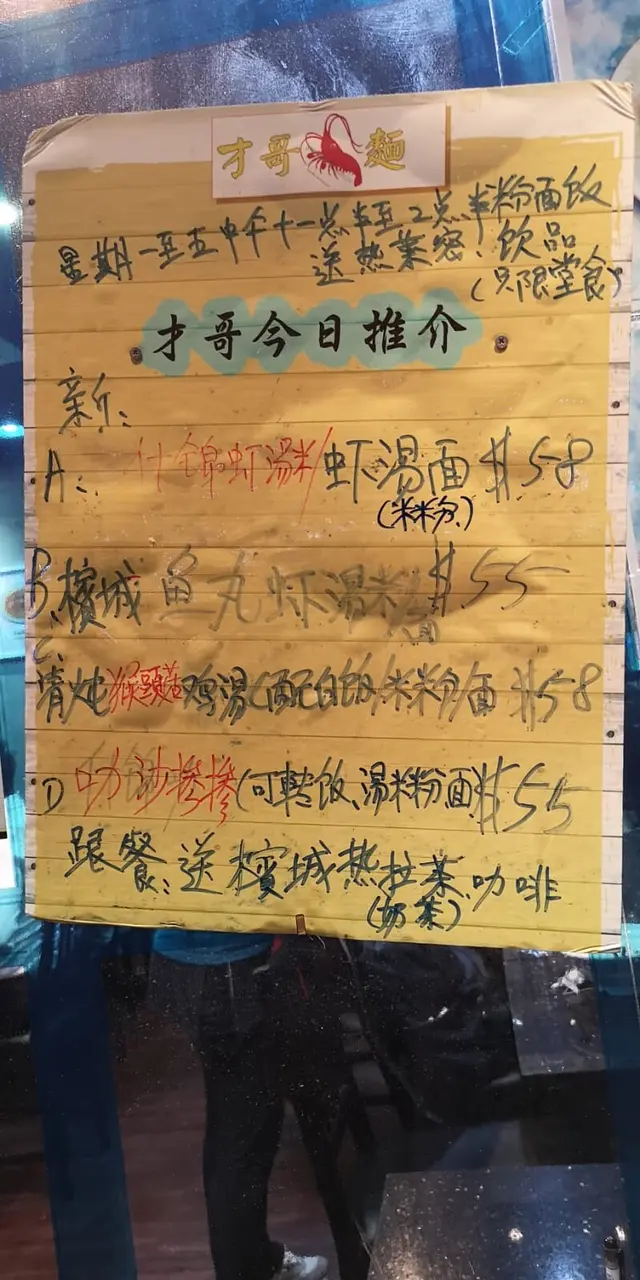 才哥麵
星期一至五中午十一点半至2点半粉面饭
送热茶 饮品
(只限堂食)
才哥今日推介
新:
A: 什锦虾汤米/虾汤面 $58
(米粉)
B. 檳城鱼丸虾汤米 $55
面
C.
清炖猴頭菇鸡湯(配白饭/米粉/面 $58
D 叻沙 (可转饭、湯米粉面 $55
跟餐: 送檳城热拉茶、咖啡
(奶茶)